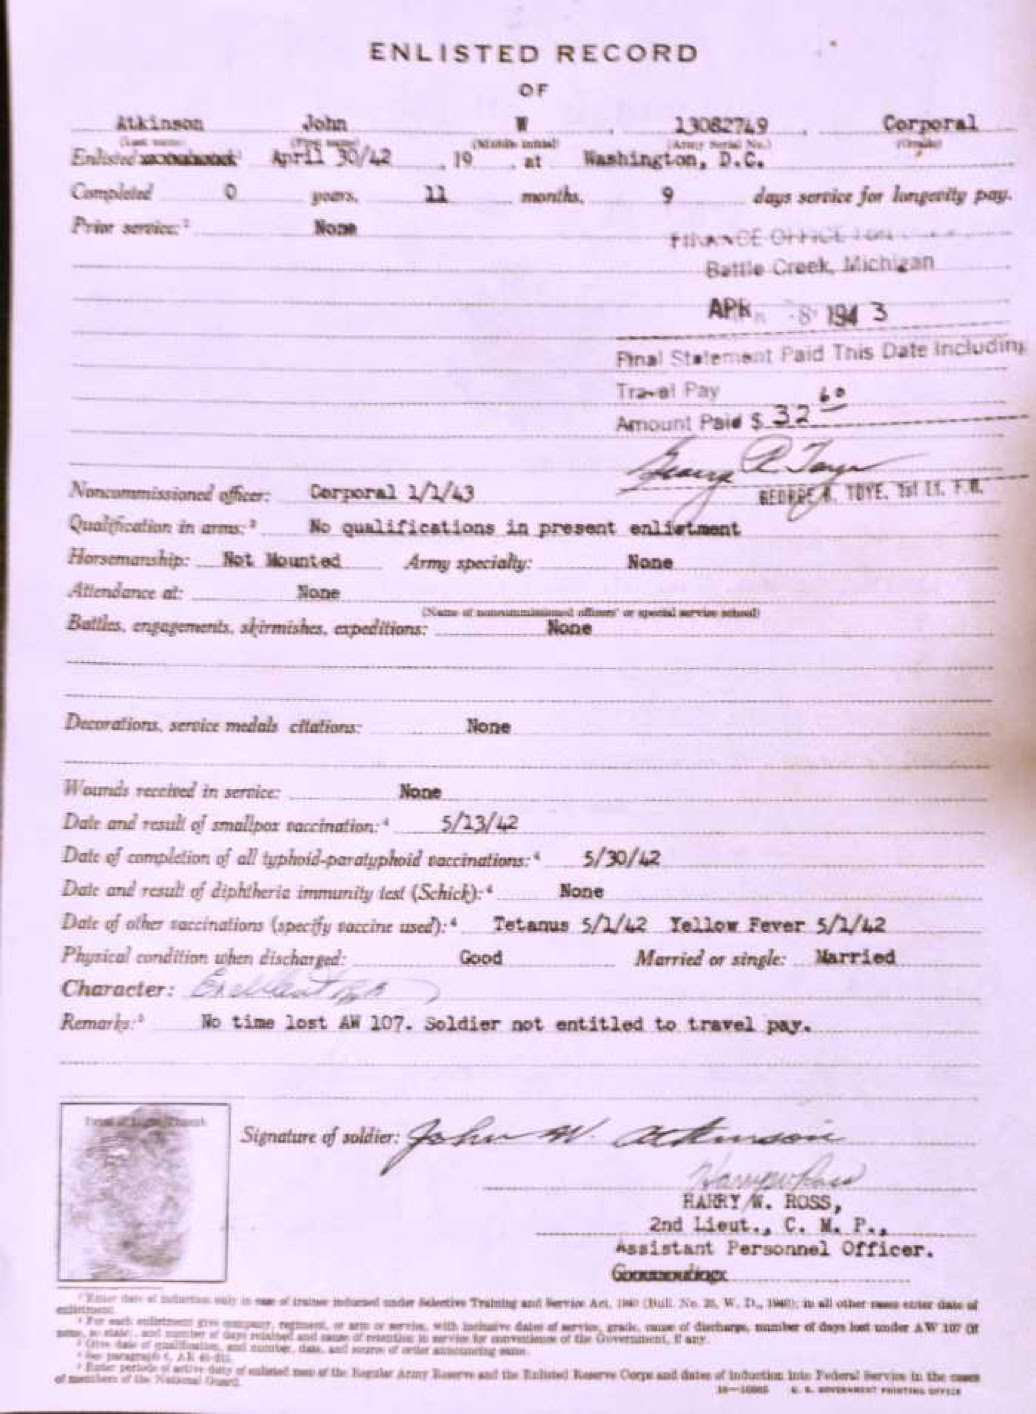 ENLISTED RECORD
OF
Atkinson John W , 13082749 , Corporal
(Last name) (First name) (Middle initial) (Army Serial No.) (Grade)
Enlisted April 30/42 , 19 , at Washington, D.C.
Completed 0 years, 11 months, 9 days service for longevity pay.
Prior service:² None
FINANCE OFFICE
Battle Creek, Michigan
APR 8 1943
Final Statement Paid This Date Including
Travel Pay
Amount Paid $ 32 60
GEORGE R. TOYE, 1st Lt. F.D.
Noncommissioned officer: Corporal 1/1/43
Qualification in arms:³ No qualifications in present enlistment
Horsemanship: Not Mounted Army specialty: None
Attendance at: None
(Name of noncommissioned officers' or special service school)
Battles, engagements, skirmishes, expeditions: None
Decorations, service medals citations: None
Wounds received in service: None
Date and result of smallpox vaccination:⁴ 5/13/42
Date of completion of all typhoid-paratyphoid vaccinations:⁴ 5/30/42
Date and result of diphtheria immunity test (Schick):⁴ None
Date of other vaccinations (specify vaccine used):⁴ Tetanus 5/1/42 Yellow Fever 5/1/42
Physical condition when discharged: Good Married or single: Married
Character: Excellent
Remarks:⁵ No time lost AW 107. Soldier not entitled to travel pay.
Signature of soldier: John W. Atkinson
Harry W Ross
HARRY W. ROSS,
2nd Lieut., C. M. P.,
Assistant Personnel Officer.
¹ Enter date of induction only in case of trainee inducted under Selective Training and Service Act, 1940 (Bull. No. 25, W. D., 1940); in all other cases enter date of
enlistment.
² For each enlistment give company, regiment, or arm or service, with inclusive dates of service, grade, cause of discharge, number of days lost under AW 107 (if
none, so state), and number of days retained and cause of retention in service for convenience of the Government, if any.
³ Give date of qualification, and number, date, and source of order announcing same.
⁴ See paragraph
⁵ Enter periods of active duty of enlisted men of the Regular Army Reserve and the Enlisted Reserve Corps and dates of induction into Federal Service in the cases
of members of the National Guard.
U. S. GOVERNMENT PRINTING OFFICE